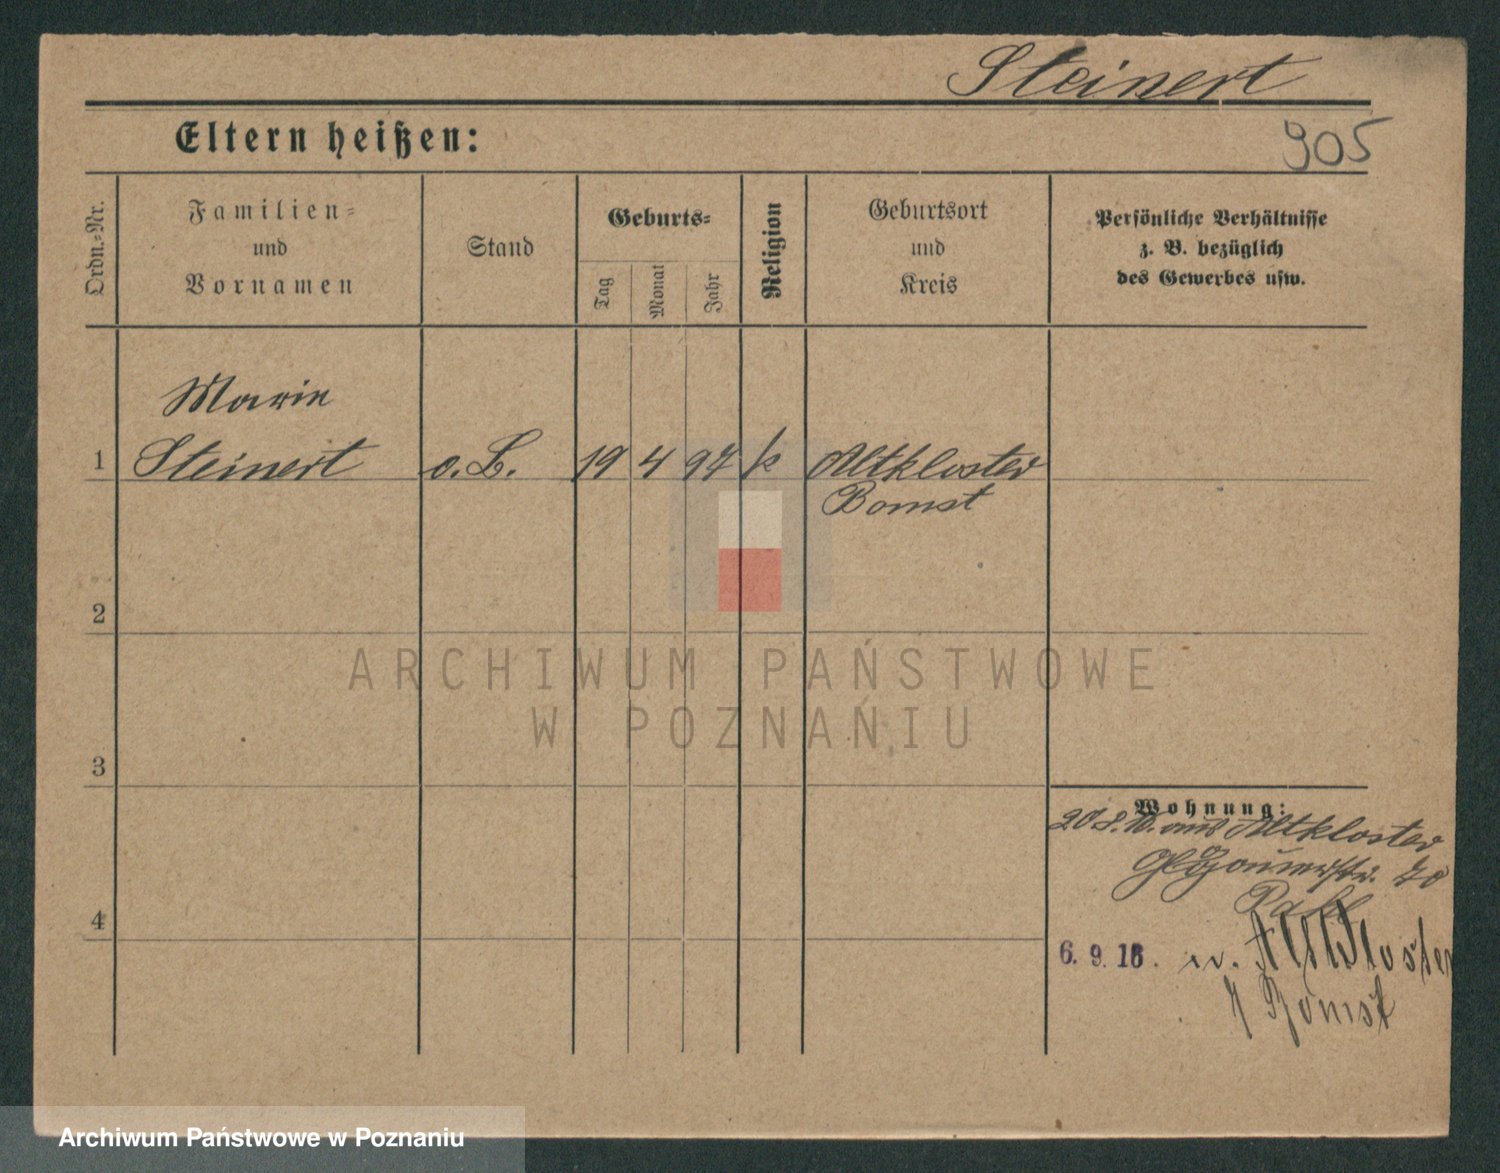 Steinert
905
Eltern heißen:
Ordn.-Nr.
Familien-
und
Vornamen
Stand
Geburts-
Tag
Monat
Jahr
Religion
Geburtsort
und
Kreis
Persönliche Verhältnisse
z. B. bezüglich
des Gewerbes usw.
Marie
1 Steinert o. B. 19 4 97 k Altkloster
Bomst
2
3
4
ARCHIWUM PAŃSTWOWE
W POZNANIU
Wohnung:
aus Altkloster
Glogauerstr.
6. 9. 16. Altkloster
Bomst
Archiwum Państwowe w Poznaniu